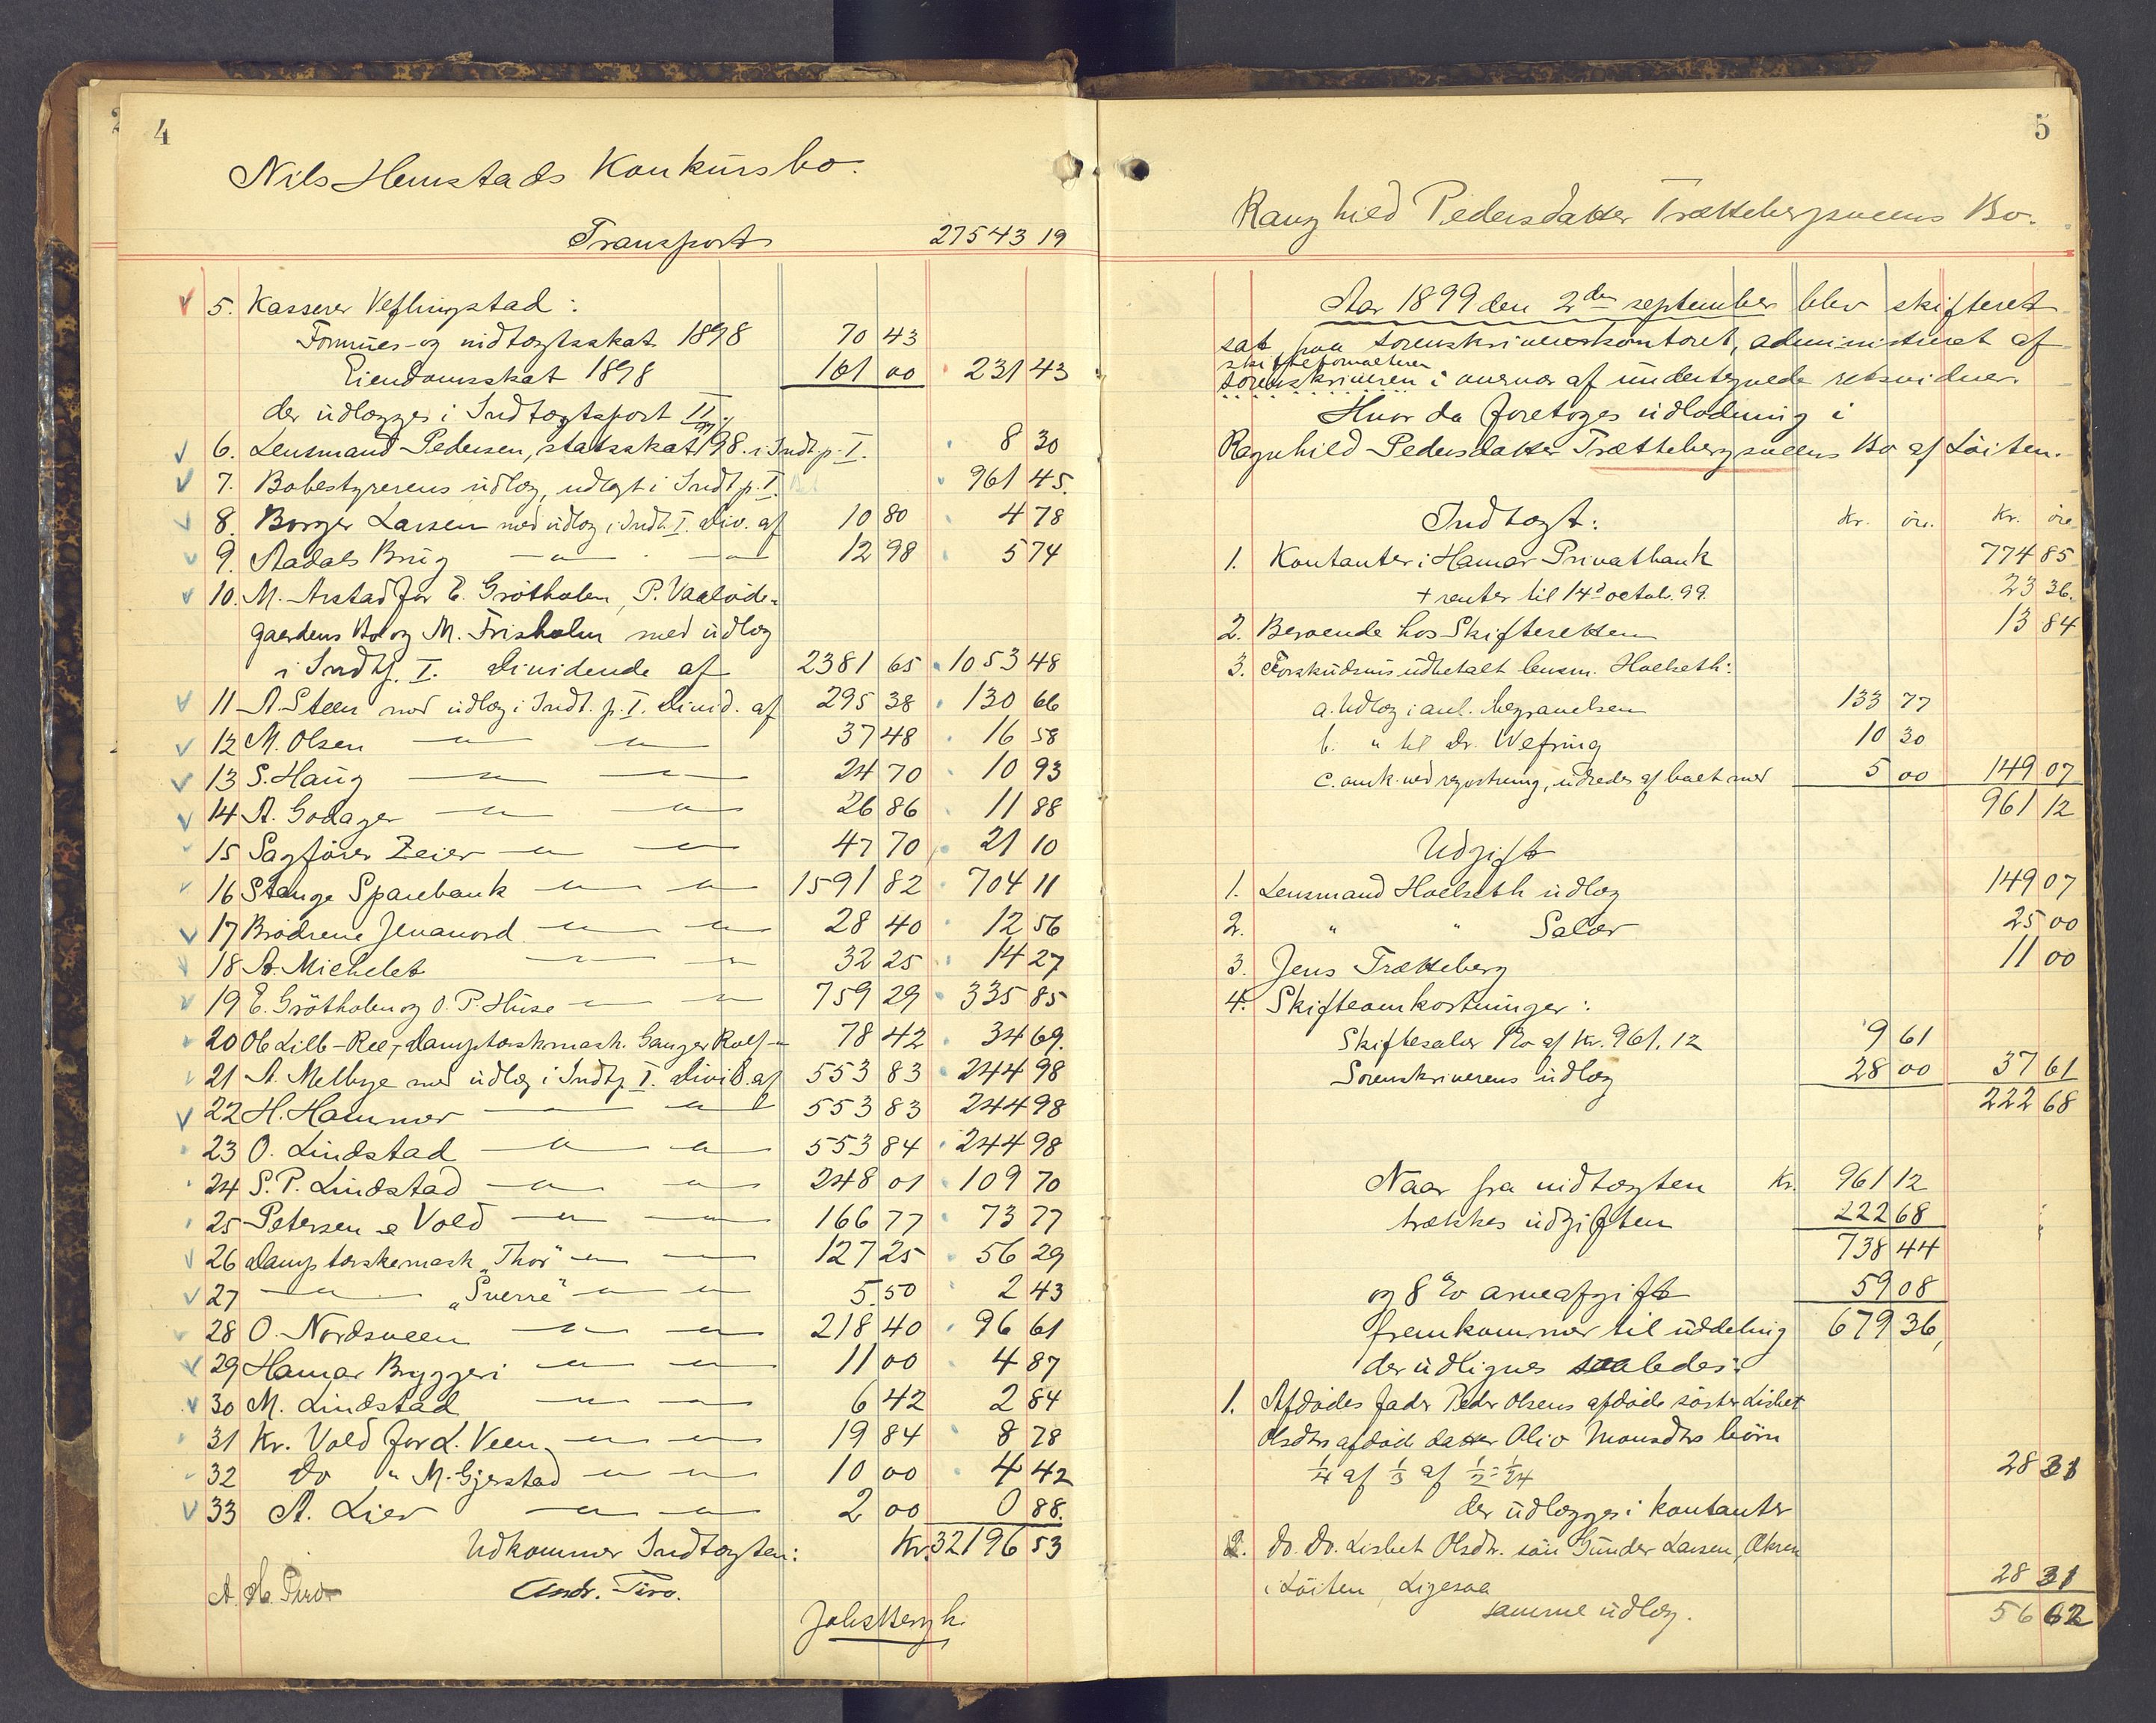 4
Nils Hemstads Konkursbo.
Transport 27543 19
5. Kasserer Veflingstad:
Formues- og indtægtsskat 1898 70 43
Eiendomsskat 1898 161 00 231 43
der udlægges i Indtægtspost II
6. Lensmand Pedersen, statsskat 98. i Indt. p. I. 8 30
7. Bobestyrerens udlæg, udlagt i Indt p. I. 961 45.
8. Borger Larsen med udlæg i Indt. I. Div. af 10 80 4 78
9. Aadals Brug —"— —"— 12 98 5 74
10. M. Arstad for E. Grötholm, P. Vaalöde-
gaardens Bo og M. Frisholm med udlæg
i Indtp. I. Dividende af 2381 65 1053 48
11 A. Steen med udlæg i Indt. p. I. Divid. af 295 38 130 66
12 M. Olsen —"— —"— 37 48 16 58
13 S. Haug —"— —"— 24 70 10 93
14 A. Godager —"— —"— 26 86 11 88
15 Sagförer Zeier —"— —"— 47 70 21 10
16 Stange Sparebank —"— —"— 1591 82 704 11
17 Brödrene Jevanord —"— —"— 28 40 12 56
18 A. Michelet —"— —"— 32 25 14 27
19 E. Grötholm og O. P. Huse —"— —"— 759 29 335 85
20 Ob Lilb-Ree, Damptærskemask. Ganger Rolf —"— 78 42 34 69.
21 A. Melbye med udlæg i Indtp I. Divid. af 553 83 244 98
22 H. Hammer —"— —"— 553 83 244 98
23 O. Lindstad —"— —"— 553 84 244 98
24 S. P. Lindstad —"— —"— 248 01 109 70
25 Petersen & Vold —"— —"— 166 77 73 77
26 Damptærskemask. „Thor" —"— —"— 127 25 56 29
27 —"— „Sverre" —"— —"— 5.50 2 43
28 O. Nordsveen —"— —"— 218 40 96 61
29 Hamar Bryggeri —"— —"— 11 00 4 87
30 M. Lindstad —"— —"— 6 42 2 84
31 Kr. Vold for L. Veen —"— —"— 19 84 8 78
32 Do " M. Gjerstad —"— —"— 10 00 4 42
33 A. Lier —"— —"— 2 00 0 88.
Udkommer Indtægten: Kr. 32196 53
Andr. Tiro.
5
Ranghild Pedersdatter Trættebergsveens Bo.
Aar 1899 den 2den september blev skifteret
sat paa sorenskriverkontoret, administreret af
skifteformanden
sorenskriveren i overvær af undertegnede retsvidner.
Hvor da foretoges udlodning i
Ragnhild Pedersdatter Trættebergsveens Bo af Löiten.
Indtægt: Kr. öre. Kr. öre
1. Kontanter i Hamar Privatbank 774 85
+ renter til 14de octob. 99. 23 36.
2. Beroende hos Skifteretten 13 84
3. Forskudsvis udbetalt lensm. Hoelseth:
a. Udlæg i anl. begravelsen 133 77
b. " til Dr. Wefring 10 30
c. omk. ved registrering, udredes af boet med 5 00 149 07
961 12
Udgift
1. Lensmand Hoelseth udlæg 149 07
2. " " Salær 25 00
3. Jens Trætteberg 11 00
4. Skifteomkostninger:
Skiftesalær 1% af Kr. 961.12 9 61
Sorenskriverens udlæg 28 00 37 61
222 68
Naar fra indtægten Kr. 961 12
trækkes udgiften 222 68
738 44
og 8% arveafgift 59 08
fremkommer til uddeling 679 36,
der udlignes saaledes:
1. Afdødes fader Peder Olsens afdöde söster Lisbet
Olsdtrs afdöde datter Olio Monsdtrs börn
1/4 af 1/3 af 1/2 = 1/24 28 31
der udlægges i kontanter
2. Do. Do. Lisbet Olsdtr. sön Gunder Larsen,
i Löiten, Ligesaa 28 31
samme udlæg. 56 62